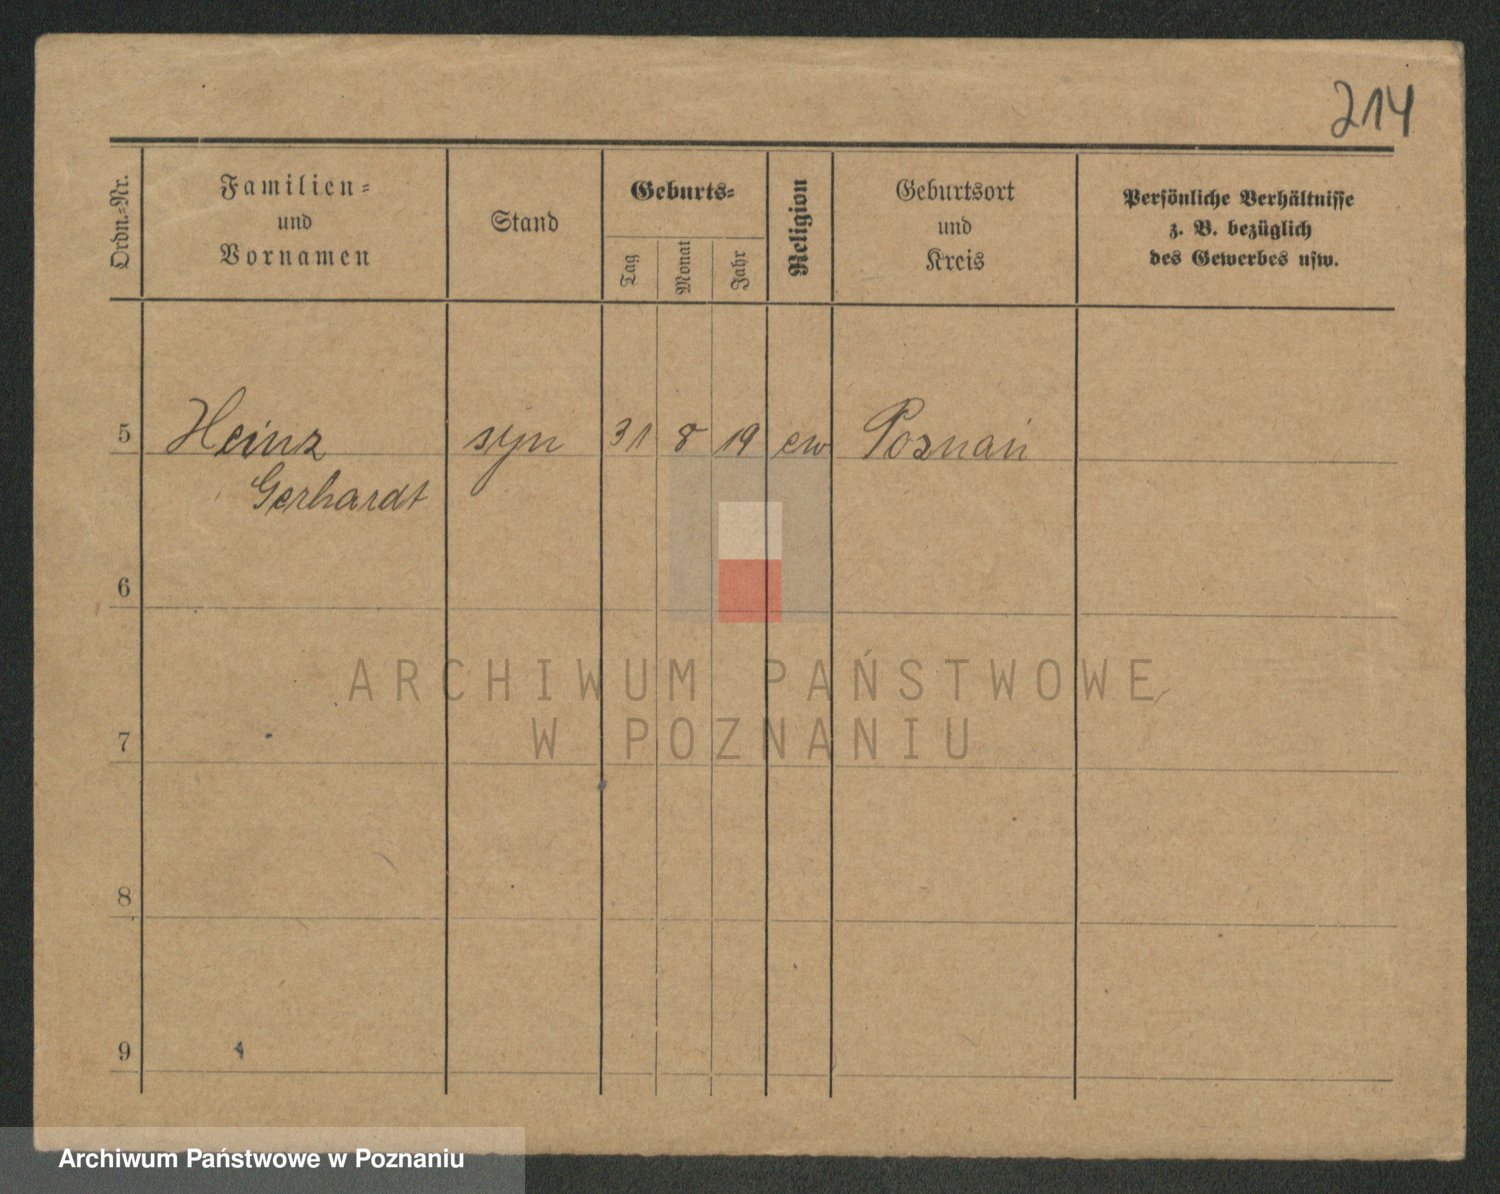 214
Ordn.-Nr.
Familien-
und
Vornamen
Stand
Geburts-
Tag
Monat
Jahr
Religion
Geburtsort
und
Kreis
Persönliche Verhältnisse
z. B. bezüglich
des Gewerbes usw.
5 Heinz syn 31 8 19 ew Poznań
Gerhardt
6
7
8
9
ARCHIWUM PAŃSTWOWE
W POZNANIU
Archiwum Państwowe w Poznaniu